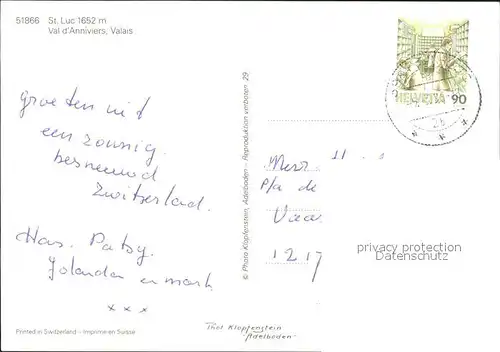 51866 St. Luc 1652 m
Val d'Anniviers, Valais
HELVETIA 90
groeten uit
een zonnig
besneeuwd
Zwitserland.
Han. Patsy.
Jolanda en mark
x x x
Pla de
1217
privacy protection
Datenschutz
© Photo Klopfenstein, Adelboden – Reproduktion verboten 29
Printed in Switzerland – Imprimé en Suisse
Thos Klopfenstein
Adelboden